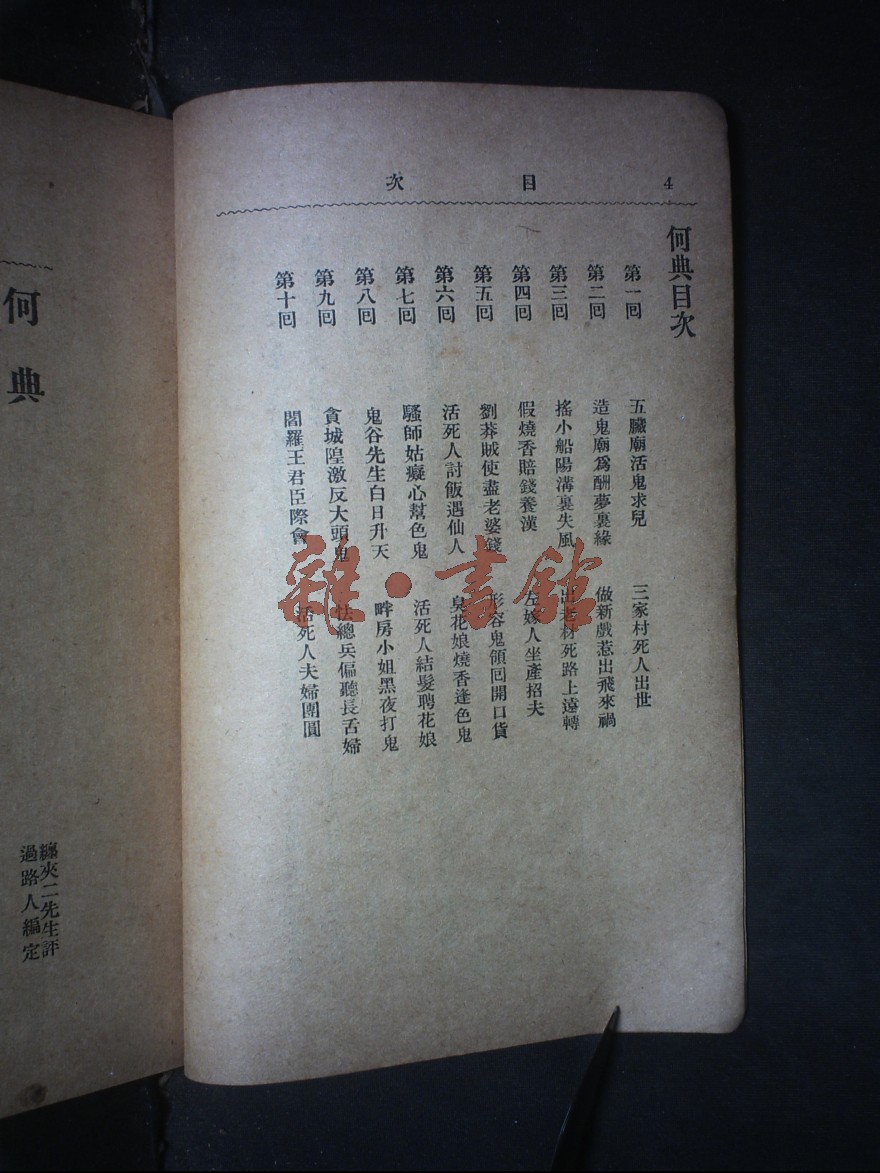 4 目次
何典目次
第一囘 五臟廟活鬼求兒 三家村死人出世
第二囘 造鬼廟爲酬夢裏緣 做新戲惹出飛來禍
第三囘 搖小船陽溝裏失風 出老材死路上遠轉
第四囘 假燒香賠錢養漢 左嫁人坐產招夫
第五囘 劉莽賊使盡老婆錢 形容鬼領囘開口貨
第六囘 活死人討飯遇仙人 臭花娘燒香逢色鬼
第七囘 騷師姑癡心幫色鬼 活死人結髮聘花娘
第八囘 鬼谷先生白日升天 畔房小姐黑夜打鬼
第九囘 貪城隍激反大頭鬼 怯總兵偏聽長舌婦
第十囘 閻羅王君臣際會 活死人夫婦團圓
何典
纏夾二先生評
過路人編定
雜·書館